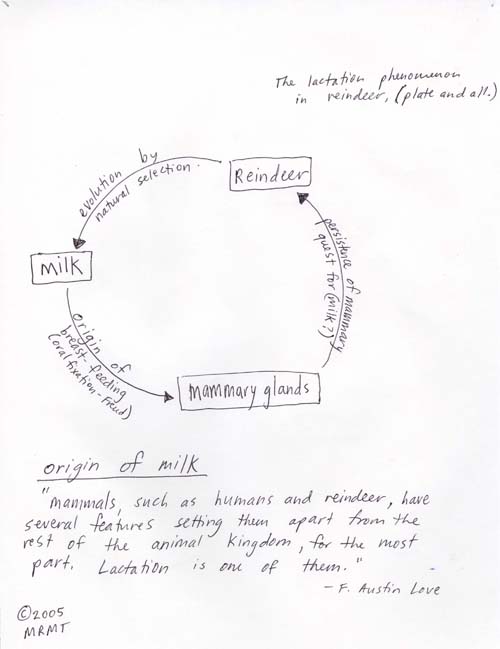 The lactation phenomenon
in reindeer, (plate and all.)
Reindeer
evolution by
natural selection.
milk
origin of
breast-feeding
(oral fixation - Freud)
mammary glands
persistence of mammary
quest for (milk?)
origin of milk
"mammals, such as humans and reindeer, have
several features setting them apart from the
rest of the animal kingdom, for the most
part. Lactation is one of them."
- F. Austin Love
©2005
MRMT